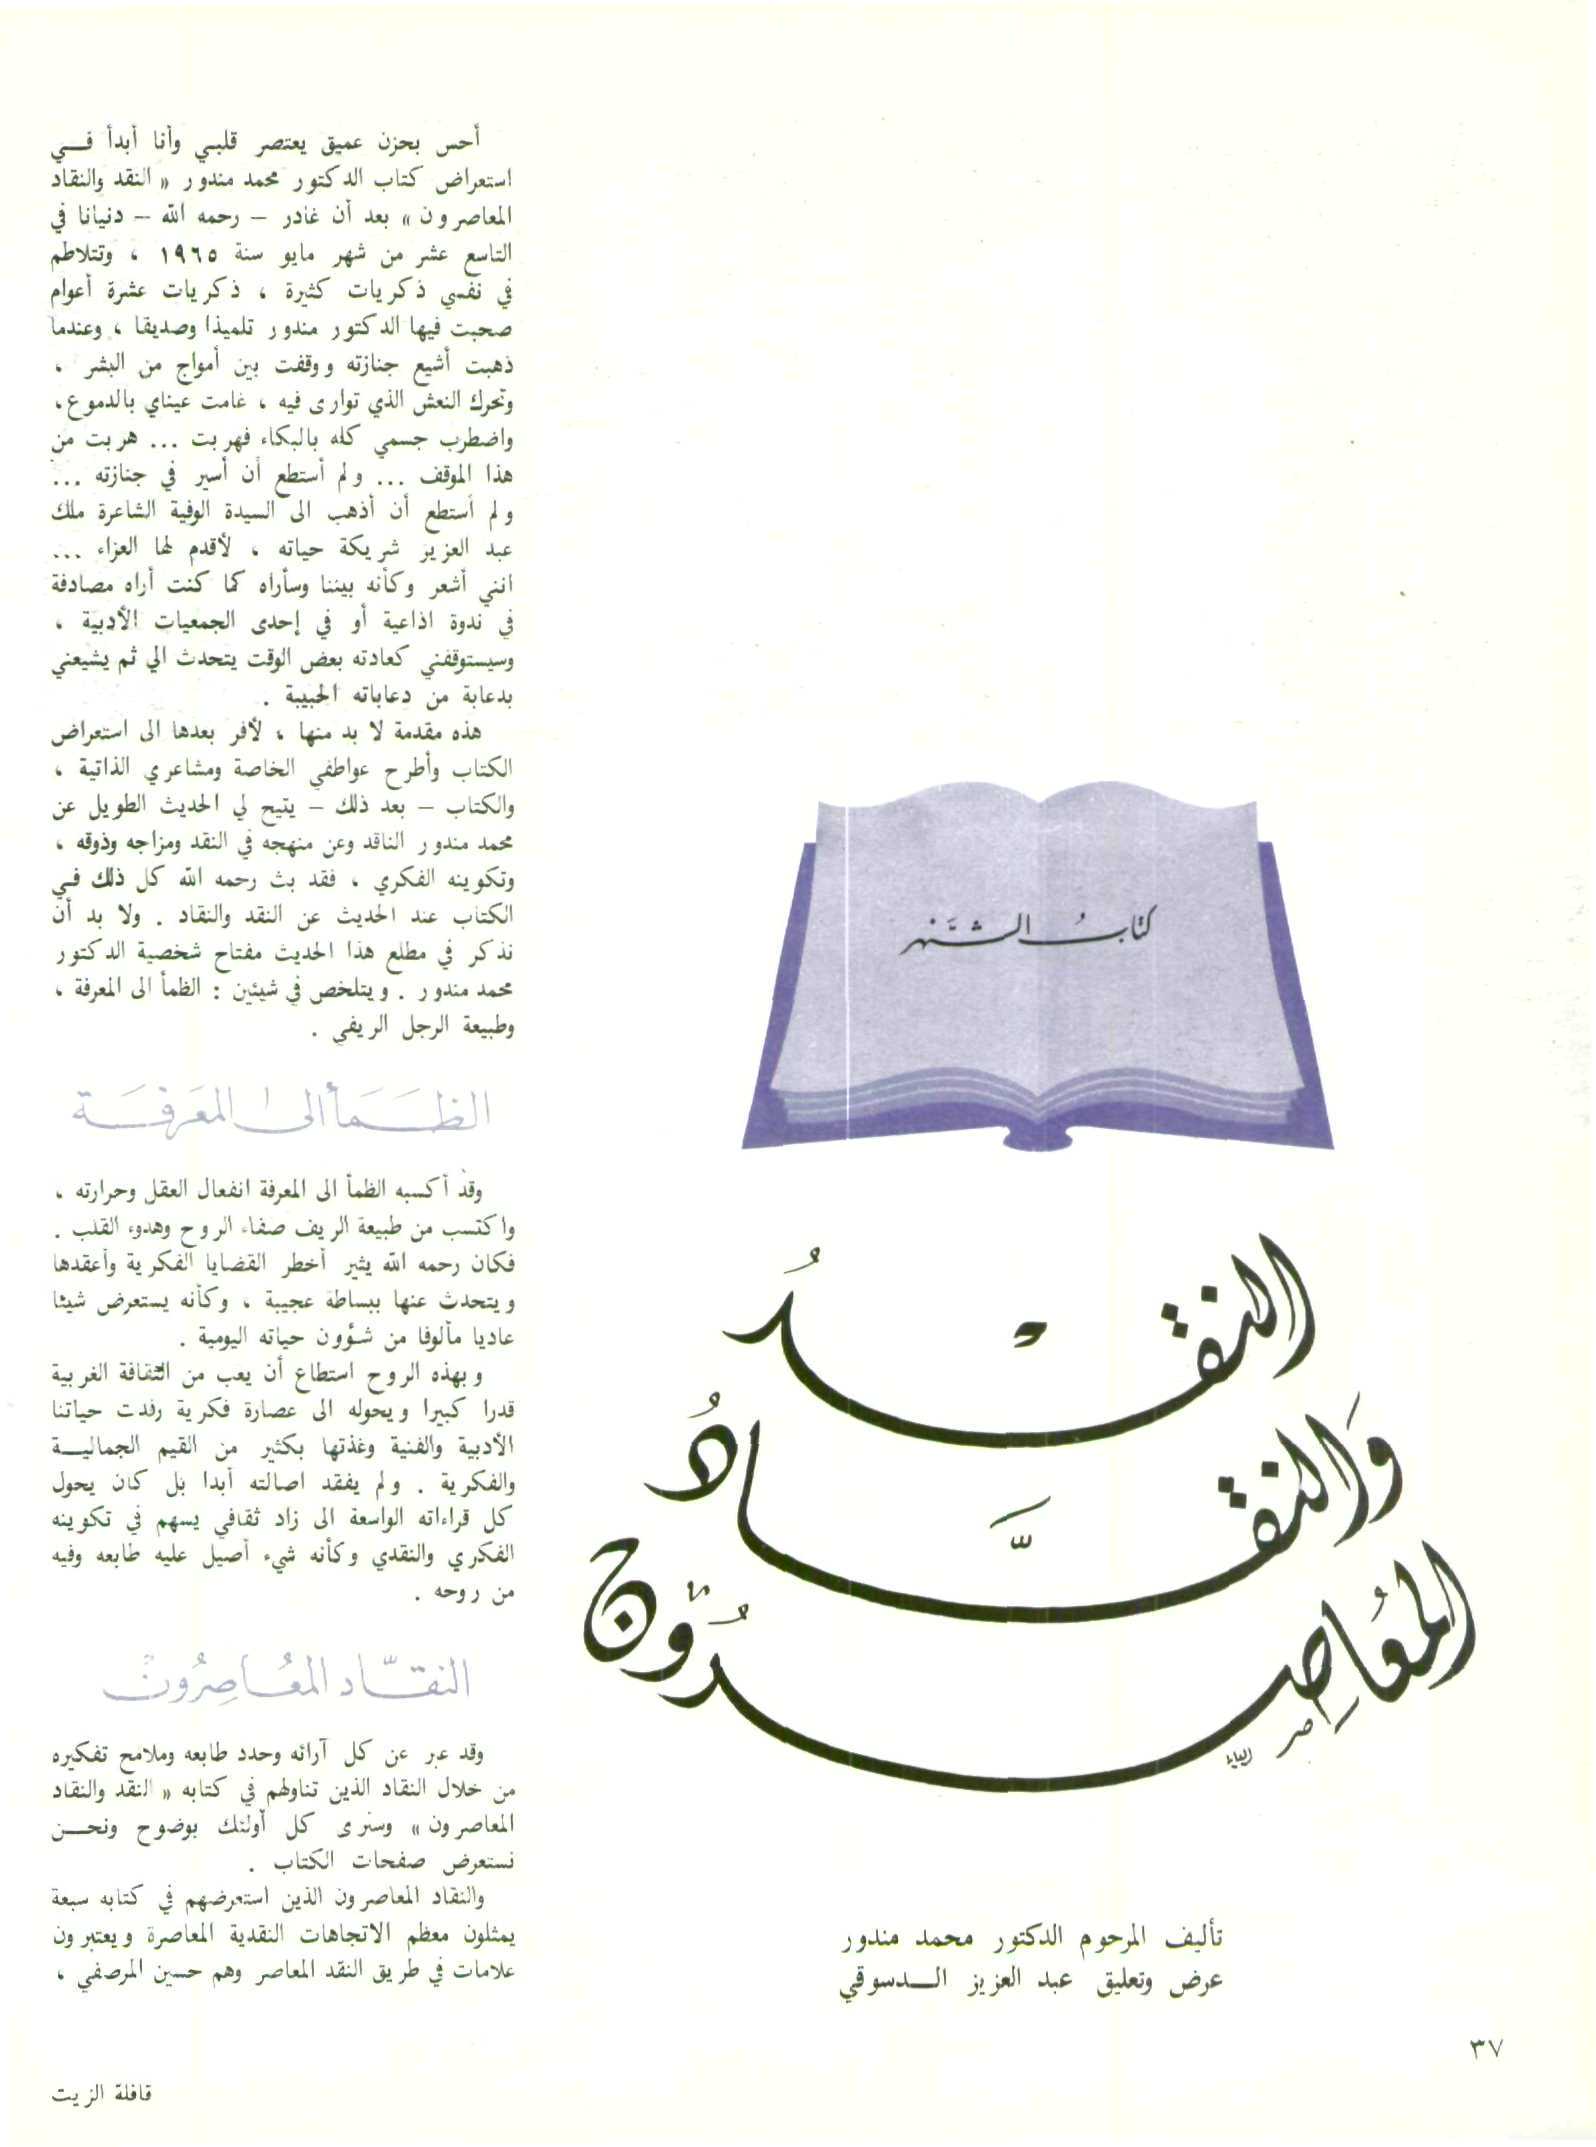 كتاب الشهر
النقد
والنقاد
المعاصرون
تأليف المرحوم الدكتور محمد مندور
عرض وتعليق عبد العزيز الدسوقي
أحس بحزن عميق يعتصر قلبي وأنا أبدأ في
استعراض كتاب الدكتور محمد مندور « النقد والنقاد
المعاصرون » بعد أن غادر – رحمه الله – دنيانا في
التاسع عشر من شهر مايو سنة ١٩٦٥ ، وتتلاطم
في نفسي ذكريات كثيرة ، ذكريات عشرة أعوام
صحبت فيها الدكتور مندور تلميذا وصديقا ، وعندما
ذهبت أشيع جنازته ووقفت بين أمواج من البشر ،
وتحرك النعش الذي توارى فيه ، غامت عيناي بالدموع ،
واضطرب جسمي كله بالبكاء فهربت ... هربت من
هذا الموقف ... ولم أستطع أن أسير في جنازته ...
ولم أستطع أن أذهب الى السيدة الوفية الشاعرة ملك
عبد العزيز شريكة حياته ، لأقدم لها العزاء ...
انني أشعر وكأنه بيننا وسأراه كما كنت أراه مصادفة
في ندوة اذاعية أو في إحدى الجمعيات الأدبية ،
وسيستوقفني كعادته بعض الوقت يتحدث الي ثم يشيعني
بدعابة من دعاباته الحبيبة .
هذه مقدمة لا بد منها ، لأفر بعدها الى استعراض
الكتاب وأطرح عواطفي الخاصة ومشاعري الذاتية ،
والكتاب – بعد ذلك – يتيح لي الحديث الطويل عن
محمد مندور الناقد وعن منهجه في النقد ومزاجه وذوقه ،
وتكوينه الفكري ، فقد بث رحمه الله كل ذلك في
الكتاب عند الحديث عن النقد والنقاد . ولا بد أن
نذكر في مطلع هذا الحديث مفتاح شخصية الدكتور
محمد مندور . ويتلخص في شيئين : الظمأ الى المعرفة ،
وطبيعة الرجل الريفي .
الظمأ الى المعرفة
وقد أكسبه الظمأ الى المعرفة انفعال العقل وحرارته ،
واكتسب من طبيعة الريف صفاء الروح وهدوء القلب .
فكان رحمه الله يثير أخطر القضايا الفكرية وأعقدها
ويتحدث عنها ببساطة عجيبة ، وكأنه يستعرض شيئا
عاديا مألوفا من شؤون حياته اليومية .
وبهذه الروح استطاع أن يعب من الثقافة الغربية
قدرا كبيرا ويحوله الى عصارة فكرية رفدت حياتنا
الأدبية والفنية وغذتها بكثير من القيم الجمالية
والفكرية . ولم يفقد اصالته أبدا بل كان يحول
كل قراءاته الواسعة الى زاد ثقافي يسهم في تكوينه
الفكري والنقدي وكأنه شيء أصيل عليه طابعه وفيه
من روحه .
النقاد المعاصرون
وقد عبر عن كل آرائه وحدد طابعه وملامح تفكيره
من خلال النقاد الذين تناولهم في كتابه « النقد والنقاد
المعاصرون » وسنرى كل أولئك بوضوح ونحن
نستعرض صفحات الكتاب .
والنقاد المعاصرون الذين استعرضهم في كتابه سبعة
يمثلون معظم الاتجاهات النقدية المعاصرة ويعتبرون
علامات في طريق النقد المعاصر وهم حسين المرصفي ،
٣٧
قافلة الزيت